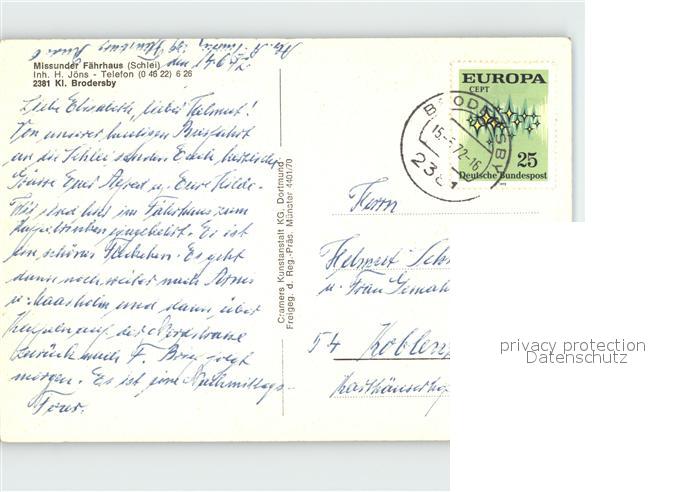 Missunder Fährhaus (Schlei)
Inh. H. Jöns - Telefon (0 46 22) 6 26
2381 Kl. Brodersby
Liebe Elisabeth, lieber Helmut!
Von unserer heutigen Busfahrt
an die Schlei senden Euch herzliche
Grüsse Euer Alfred u. Eure Hilde.
Wir sind hier im Fährhaus zum
Kaffeetrinken eingekehrt. Es ist
ein schönes Fleckchen. Es geht
dann noch weiter nach Arnis
u. Maasholm und dann über
Kappeln auf der Nordstrasse
zurück nach F. Brief folgt
morgen. Es ist eine Nachmittags-
Tour.
Cramers Kunstanstalt KG, Dortmund
Freigeg. d. Reg.-Präs. Münster 4401/70
EUROPA
CEPT
25
Deutsche Bundespost
BRODERSBY
72-16
2381
Herrn
Helmut
u. Frau Gemah
54 Koblen
Karthäuserho
privacy protection
Datenschutz